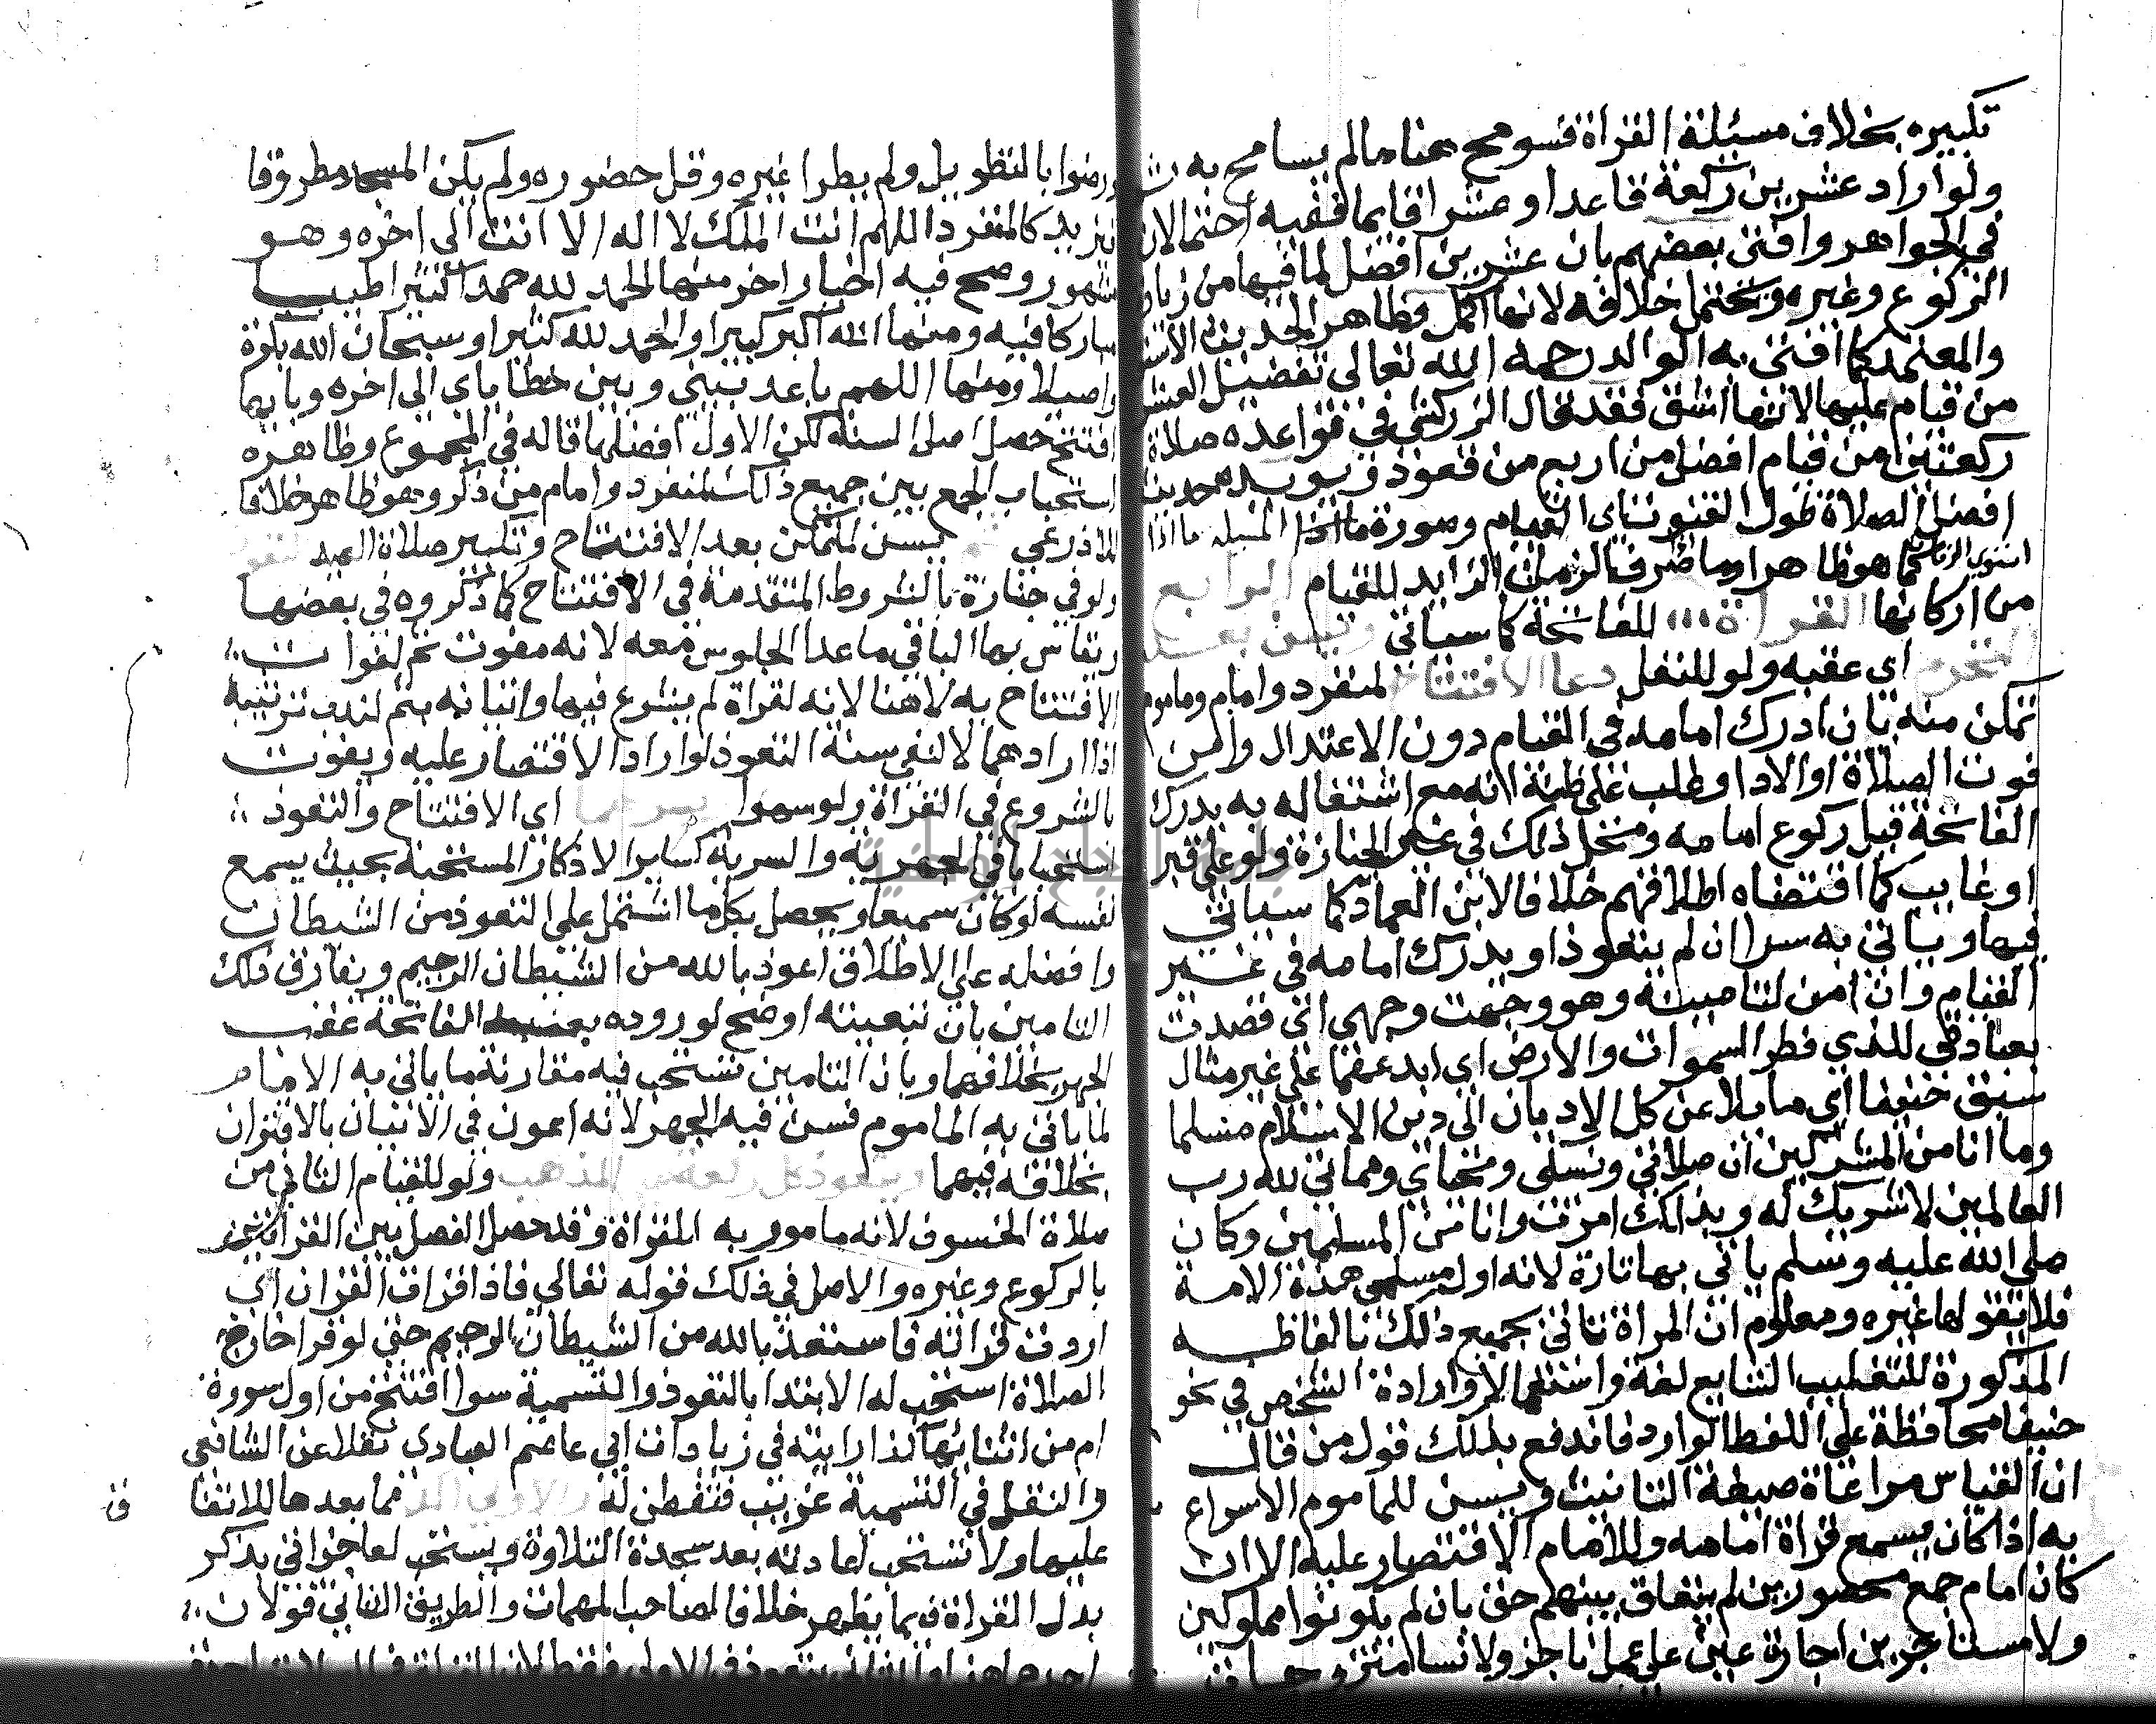 تكبيره بخلاف مسئلة القراة فسومح هنا ما لم يسامح به ث
ولو اراد عشرين ركعة قاعدا او عشرا قايما ففيه احتمالان
في الجواهر وافتى بعضهم بان عشرين افضل لما فيها من زياد
الركوع وغيره ويحتمل خلافه لانها اكمل وظاهر الحديث الاستو
والمعتمد كما افتى به الوالد رحمه الله تعالى تفضيل العشر
من قيام عليها لانها اشق فقد قال الزركشي في قواعده صلاة
ركعتين من قيام افضل من اربع من قعود ويويده حديث
افضل الصلاة طول القنوت اي القيام وصورة المسيلة ما اذا
استوى الزمان كما هو ظاهر وما صرف الزمن الزايد للقيام الرابع
من اركانها القراة للفاتحة كما سياتي ويسن بعد
التحرم اي عقبه ولو للنفل دعا الافتتاح لمنفرد وامام وماموم
تمكن منه بان ادرك امامه في القيام دون الاعتدال وامن
فوت الصلاة او الادا وغلب على ظنه انه مع اشتغاله به يدرك
الفاتحة قبل ركوع امامه ومحل ذلك في غير الجنازة ولو على قبر
او غايب كما اقتضاه اطلاقهم خلافا لابن العماد كما سياتي
فيها وياتي به سرا ان لم يتعوذ او يدرك امامه في غير
القيام وان امن لتامينه وهو وجهت وجهي اي قصدت
بعبادتي للذي فطر السموات والارض اي ابدعهما على غير مثال
سبق حنيفا اي مايلا عن كل الاديان الى دين الاسلام مسلما
وما انا من المشركين ان صلاتي ونسكي ومحياي ومماتي لله رب
العالمين لا شريك له وبذلك امرت وانا من المسلمين وكان
صلى الله عليه وسلم ياتي بها تارة لانه اول مسلمي هذه الامة
فلا يقولها غيره ومعلوم ان المراة تاتي بجميع ذلك بالفاظه
المذكورة للتغليب الشايع لغة واستعمالا وارادة الشخص في نحو
حنيفا محافظة على اللفظ الوارد فاندفع بذلك قول من قال
ان القياس مراعاة صيغة التانيث ويسن للماموم الاسراع
به اذا كان يسمع قراة امامه وللامام الاقتصار عليه الا ان
كان امام جمع محصورين لم يتعلق بعينهم حق بان لم يكونوا مملوكين
ولا مستاجرين اجارة عين على عمل ناجز ولا نسا متزوجات
ورضوا بالتطويل ولم يطرا غيره وقل حضوره ولم يكن المسجد مطروقا
نزيد كالمنفرد اللهم انت الملك لا اله الا انت الى اخره وهو
شهور وصح فيه اخبار اخر منها الحمد لله حمدا كثيرا طيبا
مباركا فيه ومنها الله اكبر كبيرا والحمد لله كثيرا وسبحان الله بكرة
واصيلا ومنها اللهم باعد بيني وبين خطاياي الى اخره وبايها
افتتح حصل اصل السنة لكن الاول افضلها قاله في المجموع وظاهره
استحباب الجمع بين جميع ذلك لمنفرد وامام من ذكر وهو ظاهر خلافا
للاذرعي يسن لمتمكن بعد الافتتاح وتكبير صلاة العيد التعوذ
ولو في جنازة بالشروط المتقدمة في الافتتاح كما ذكروه في بعضها
ويقاس بها الباقي ما عدا الجلوس معه لانه مفوت ثم لفوات
الافتتاح به لا هنا لانه لقراة لم يشرع فيها واتيانه بثم لندب ترتيبه
اذا ارادهما لا لنفي سنة التعوذ لو اراد الاقتصار عليه ويفوت
بالشروع في القراة ولو سهوا يسرهما اي الافتتاح والتعوذ
استحبابا في الجهرية والسرية كساير الاذكار المستحبة بحيث يسمع
نفسه لو كان سميعا ويحصل بكل ما اشتمل على التعوذ من الشيطان
وافضله على الاطلاق اعوذ بالله من الشيطان الرجيم ويفارق ذلك
التامين بان تبعيته اوضح لوروده بعد الفاتحة عقب
الجهر بخلافهما وبان التامين تستحب فيه مقارنة ما ياتي به الامام
لما ياتي به الماموم فسن فيه الجهر لانه اعون في الاتيان بالاقتران
بخلافه فيهما ويتعوذ كل ركعة على المذهب ولو للقيام الثاني من
صلاة الخسوف لانه مامور به للقراة وقد حصل الفصل بين القراتين
بالركوع وغيره والاصل في ذلك قوله تعالى فاذا قرات القران اي
اردت قراته فاستعذ بالله من الشيطان الرجيم حتى لو قرا خارج
الصلاة استحب له الابتدا بالتعوذ والتسمية سوا افتتح من اول سورة
ام من اثنائها كذا رايته في زيادات ابي عاصم العبادي نقلا عن الشافعي
والنقل في التسمية غريب فتفطن له والاولى اكد مما بعدها للاتفاق
عليها ولا تستحب اعادته بعد سجدة التلاوة ويستحب لعاجز اتى بذكر
بدل القراة فيما يظهر خلافا لصاحب المهمات والطريق الثاني قولان